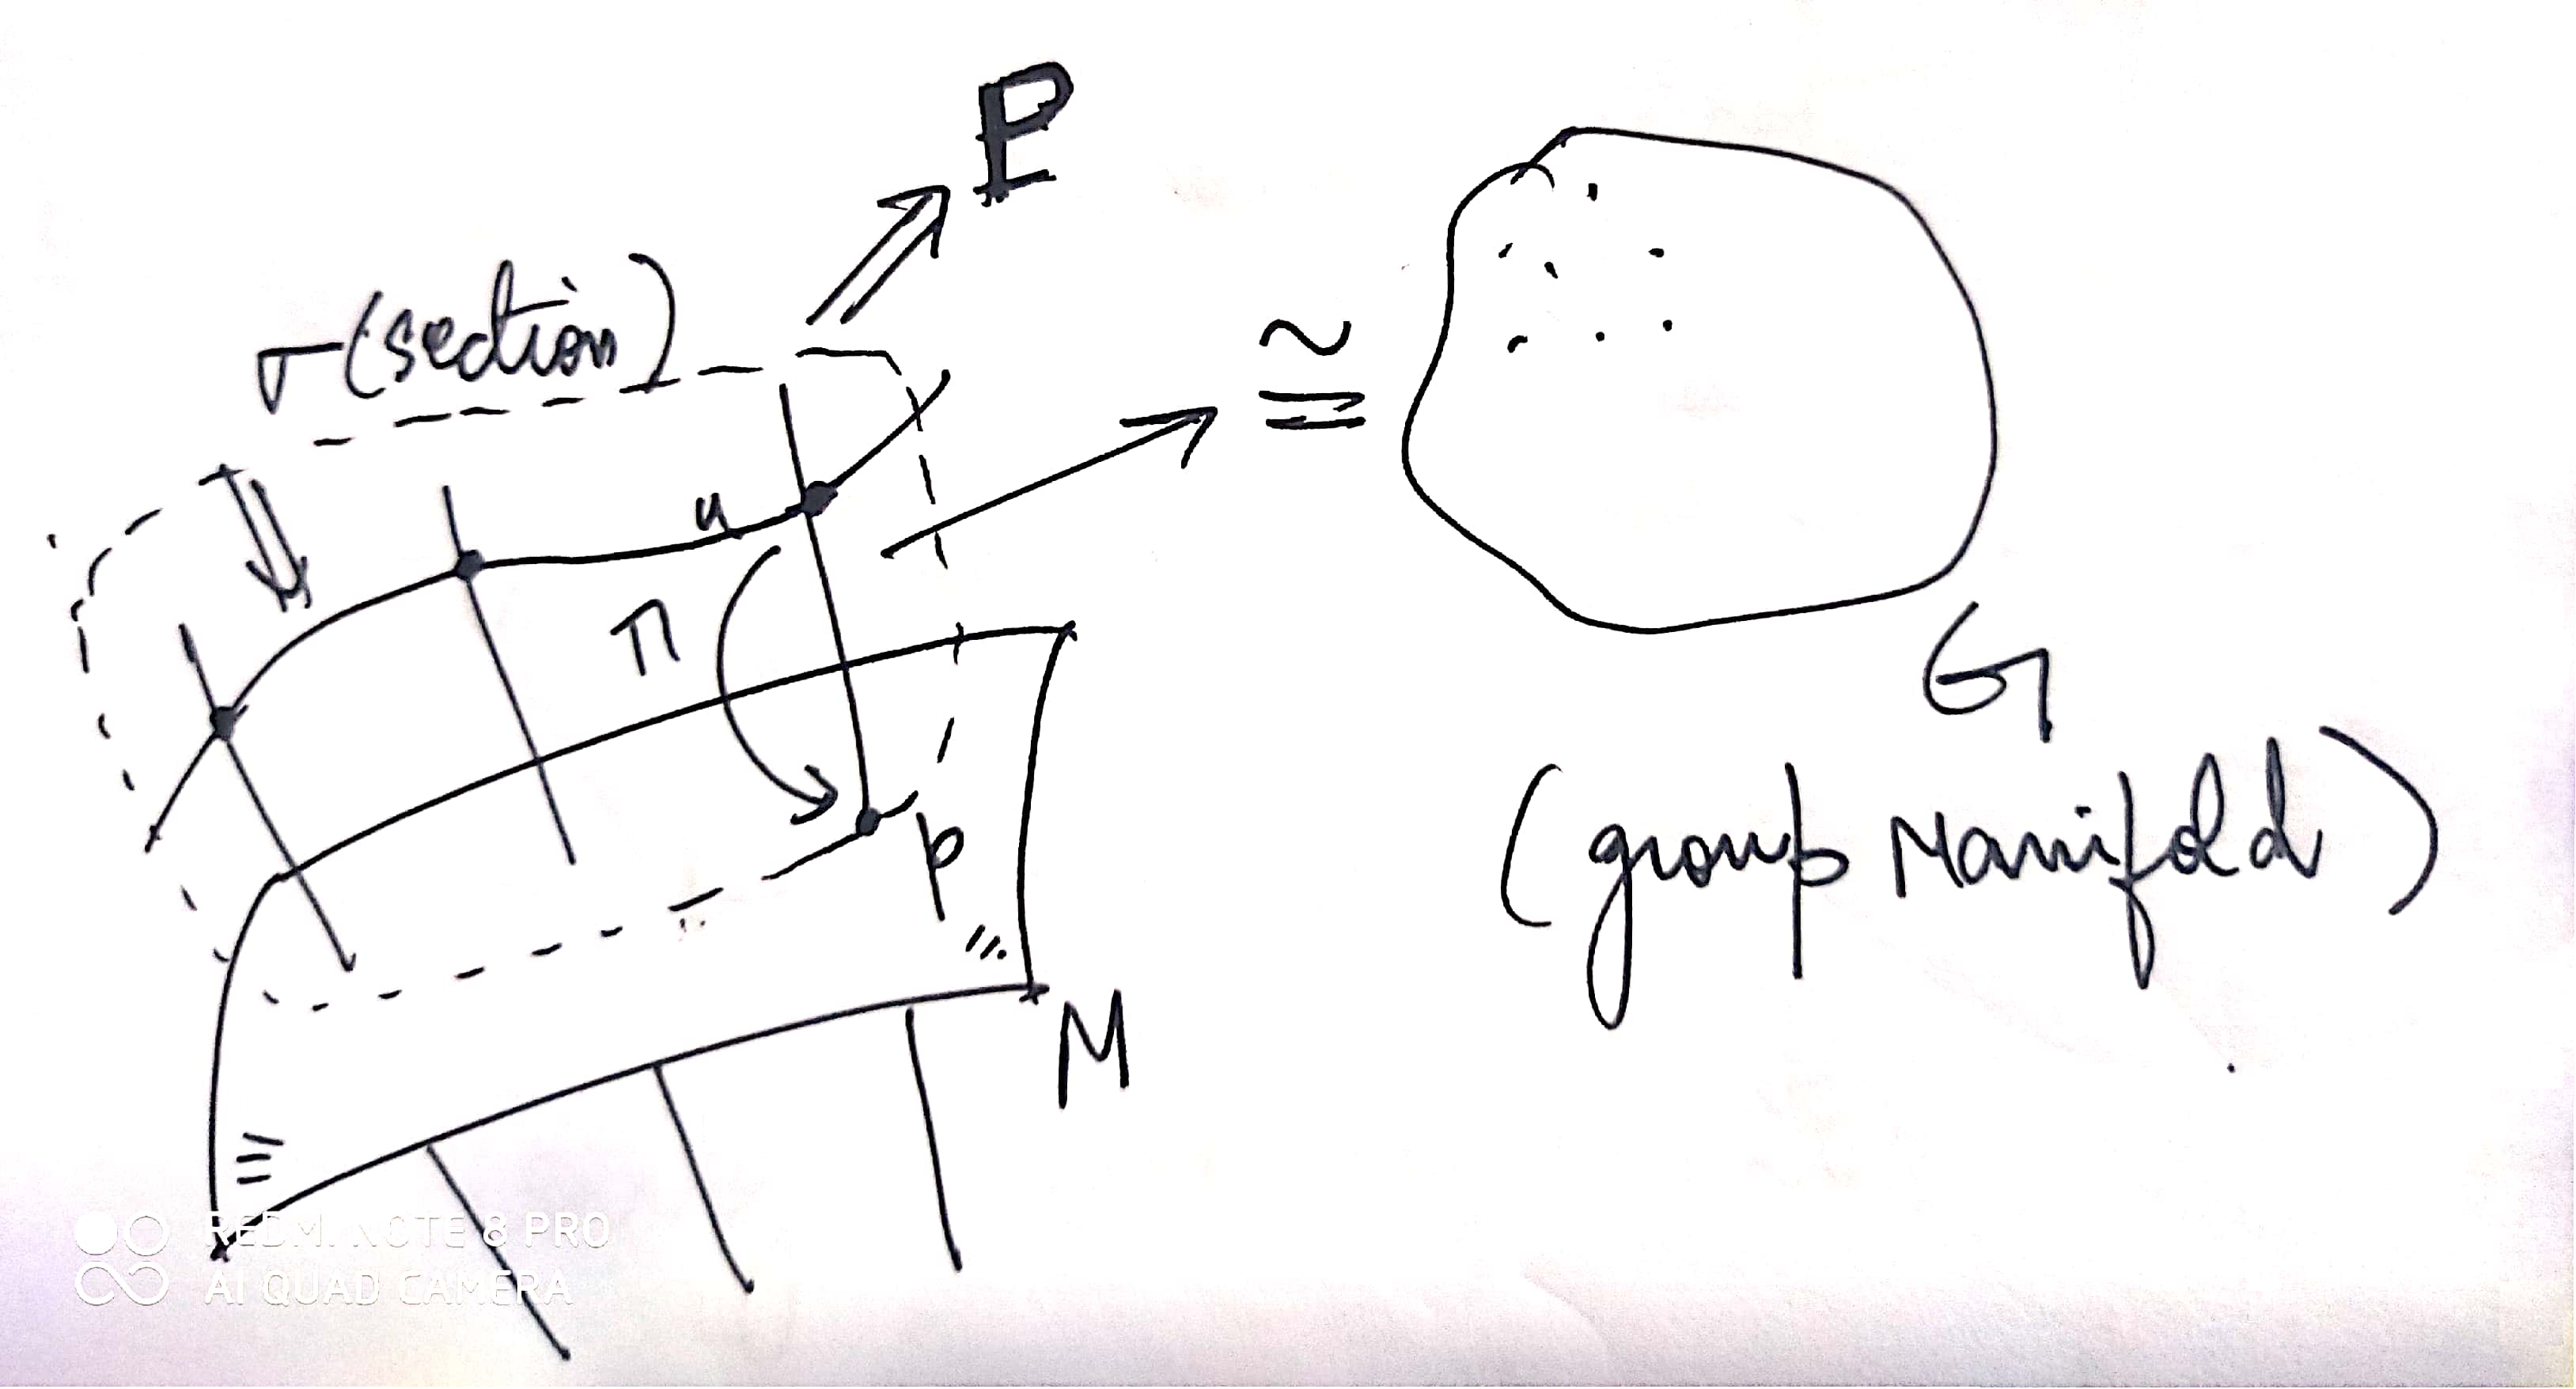 P
σ (section)
≅
u
π
G
p
(group Manifold)
M
REDMI NOTE 8 PRO
AI QUAD CAMERA